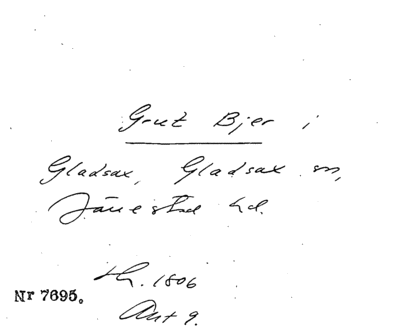 Grut Bjer i
Gladsax, Gladsax sn,
Järrestad hd.
th. 1806
Nr 7695.
Ant 9.